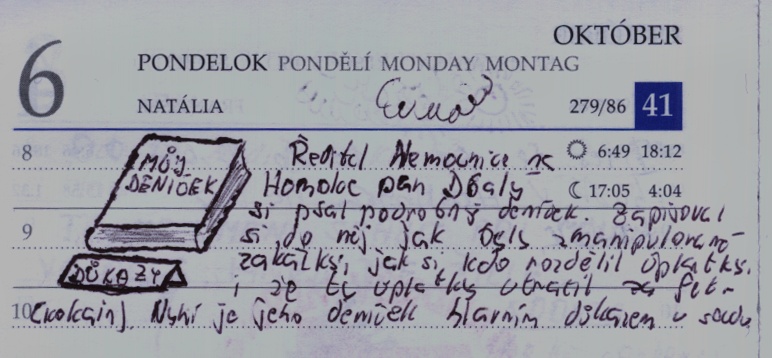 OKTÓBER
6
PONDELOK PONDĚLÍ MONDAY MONTAG
NATÁLIA
279/86 41
8
MŮJ
DENÍČEK
Ředitel Nemocnice na
6:49 18:12
Homolce pan Dbalý
17:05 4:04
si psal podrobný deníček. Zapisoval
9
si do něj, jak byly zmanipulované
zakázky, jak si kdo rozdělil úplatky.
DŮKAZY
i že ty úplatky utratil za
10
(kokain). Nyní je jeho deníček hlavním důkazem u soudu